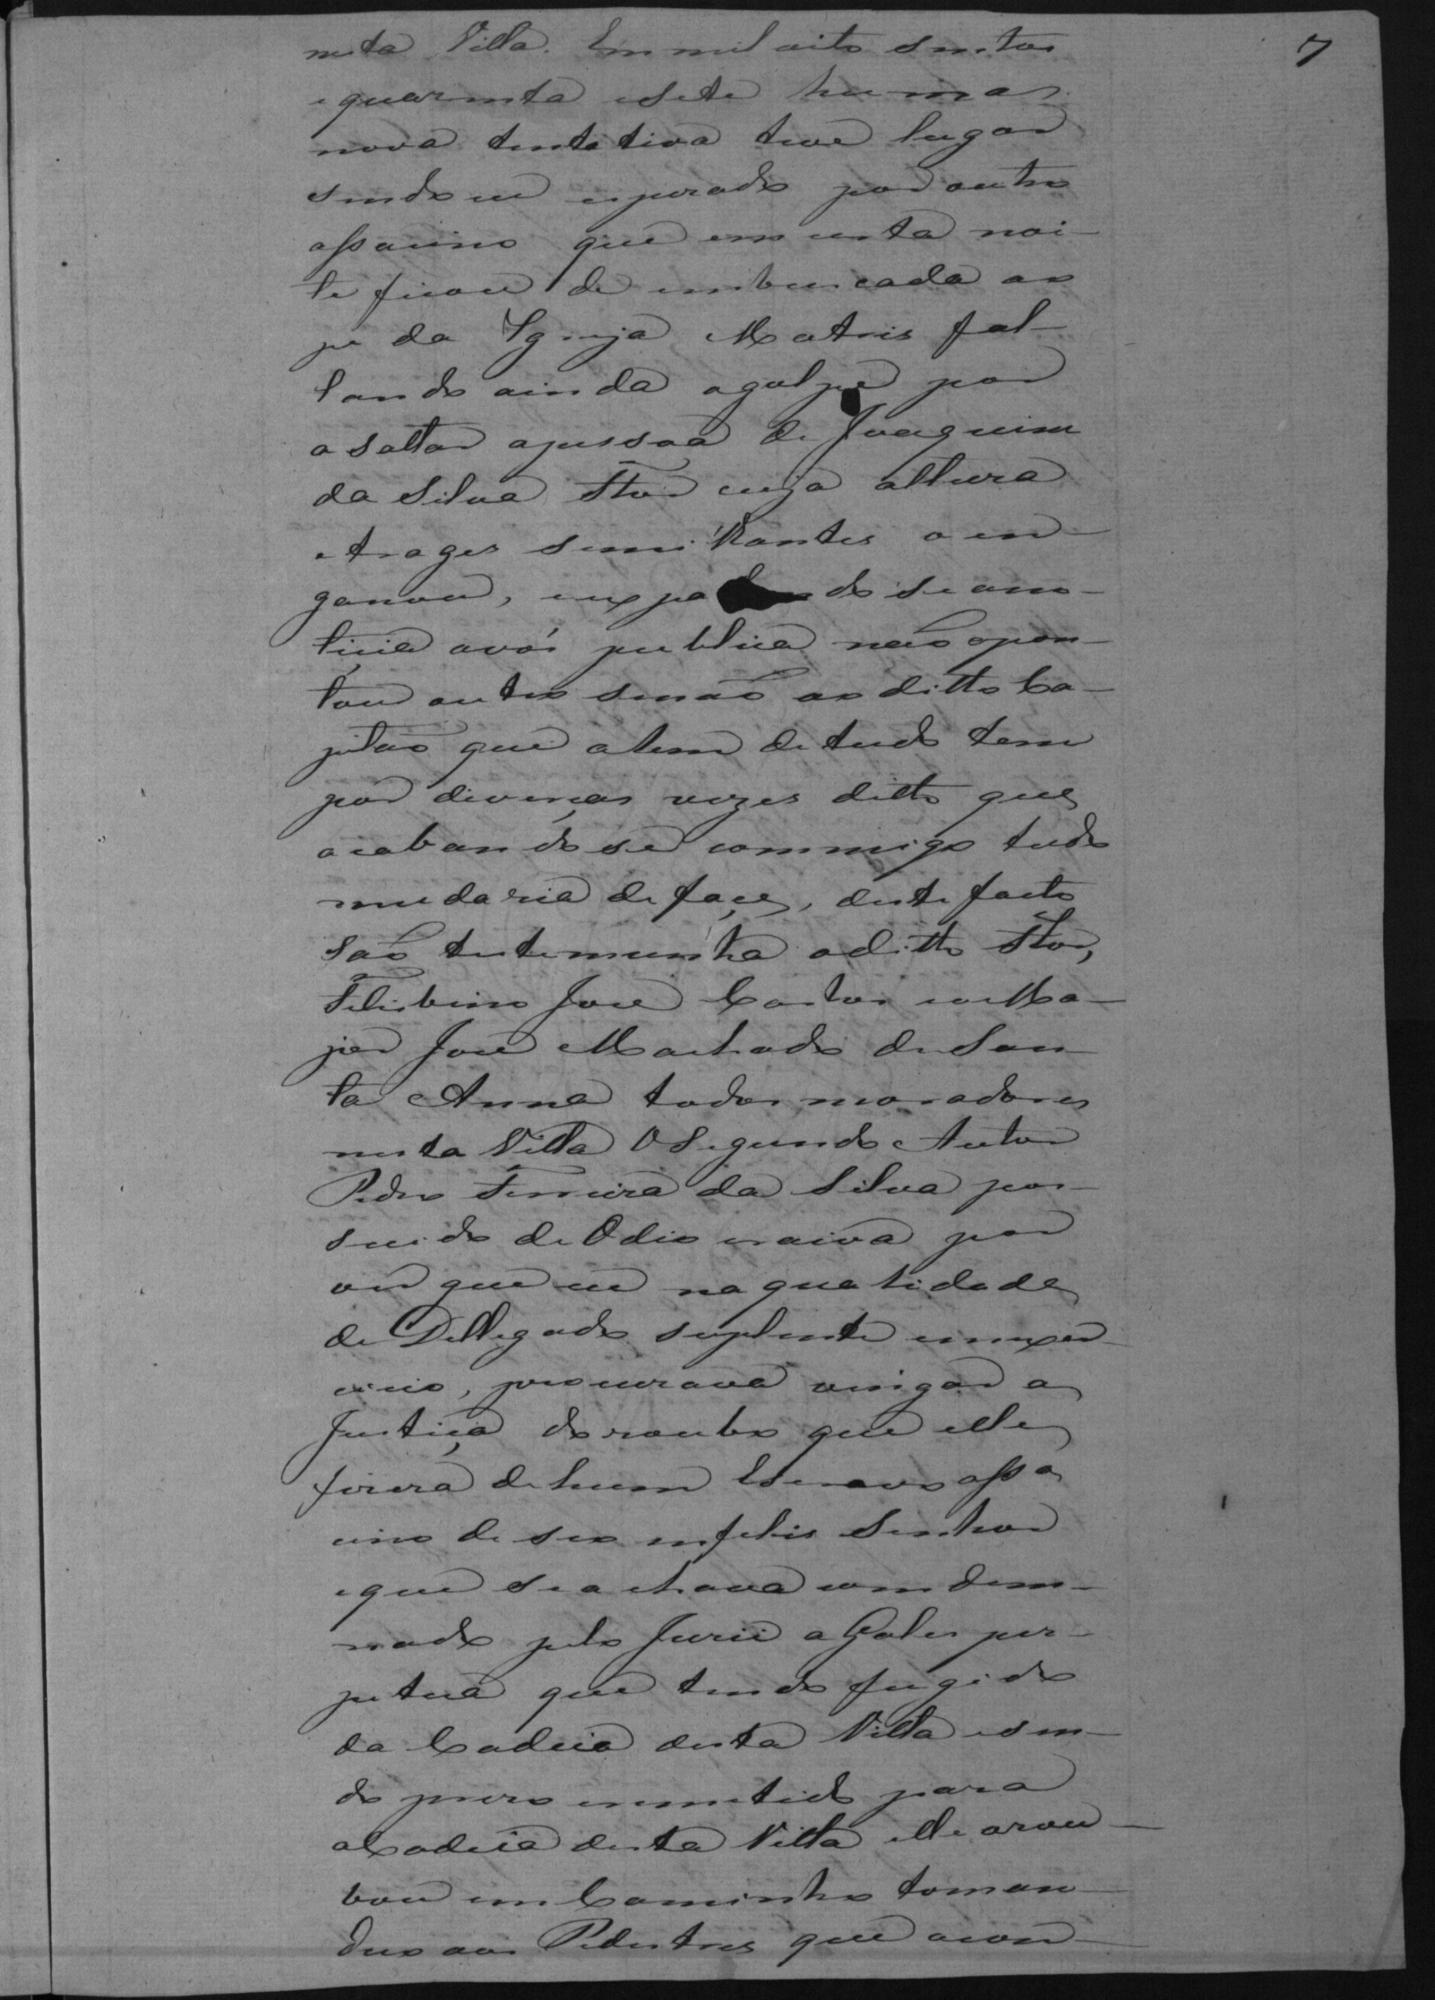 7
nesta Villa. Em mil oito sentos
e quarenta e sete huma
nova tentativa teve lugar
sendo eu esperado por outro
assacino que em certa noi-
te ficou de embuscada ao
pe da Igreja Matris fal-
tando ainda o golpe por
asaltar a pessoa de Joaquim
da Silva Flor cuja altura
e trages semilhantes o en-
ganou, e expa do se a no-
ticia a vós publica não apon-
tou outro senão ao ditto Ca-
pitão que alem de tudo tem
por diverças vezes ditto que
acabando se commigo tudo
mudaria de façe, deste facto
são testemunha o ditto Flor,
Felisbino José Cantos e o Ma-
jor José Machado de San-
ta Anna todos moradores
nesta Villa O Segundo Autor
Pedro Ferreira da Silva pos-
suido de Odio e raiva por
ver que eu na qualidade
de Dellegado suplente em exer-
cicio, procurava vingar a
Justiça do roubo que elle
fizera de hum Escravo assa
cino de seo infelis Senhor
e que se achava comdem-
nado pelo Jurii a Gales per-
petua que tendo fugido
da Cadeia desta Villa e sen-
do prezo e remetido para
a Cadeia desta Villa elle arou-
bou em Caminho toman-
do o aos Pedestres que o con-